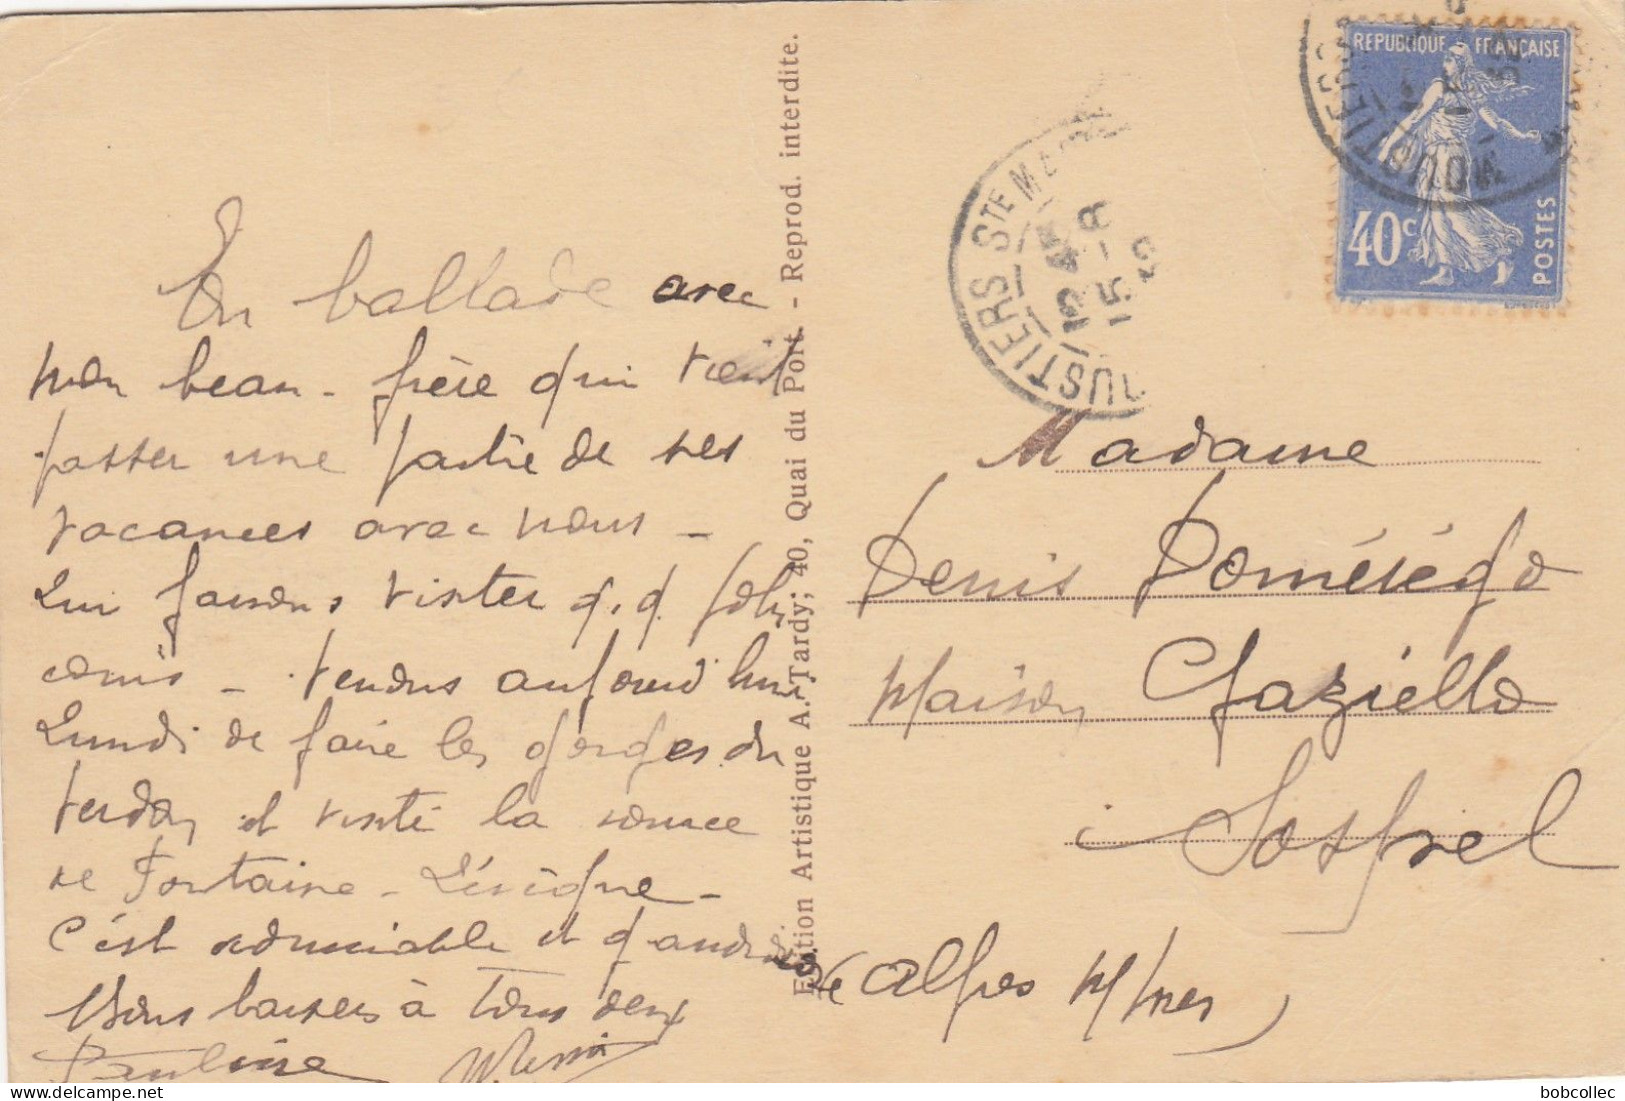 En ballade avec
mon beau-frère qui vient
passer une partie de ses
vacances avec nous -
Lui faisons visiter q.q. jolis
coins - venons aujourd'hui
Lundi de faire les gorges du
Verdon et visité la source
de Fontaine-L'évêque -
C'est admirable et grandiose
Bons baisers à tous deux
Pauline
Edition Artistique A. Tardy, 40, Quai du Port. - Reprod. interdite.
REPUBLIQUE FRANÇAISE
40c
POSTES
MOUSTIERS
MOUSTIERS STE MA
12 45
15 - 8
Madame
Denis Domérégo
Maison Graziello
à Sospel
Alpes M/mes)
bobcollec